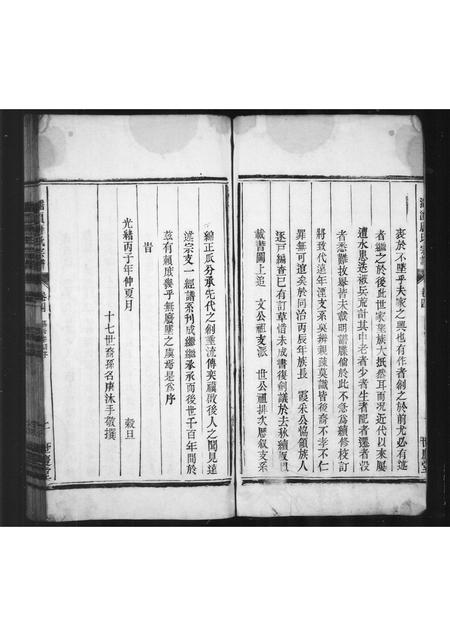 喪於不墜乎夫家之興也有作者創之於前尤必有述
者繼之於後此世家望族大抵然耳而况近代以來屢
遭水患迭被兵荒計其中老者少者生者配者遷者歿
者悉難枚舉皆未載明譜牒倘於此不急為續修校訂
將致代遠年湮支系莫辨親疎莫識皆後裔不孝不仁
罪無可逭矣於同治丙辰年族長 霞采公倡領族人
逐戸編查已有訂草惜未成書復創議於去秋續
載譜圖上追 文公祖支派 世公祖排次層叙支系
繪正瓜分承先代之創垂流傳奕禩啟後人之聞見遠
述宗支一經譜系刊成繼繼承承而後世千百年間於
茲有賴庶喪乎無廢墜之虞焉是為序
旹
光緒丙子年仲夏月 穀旦
十七世裔孫名庚沐手敬撰